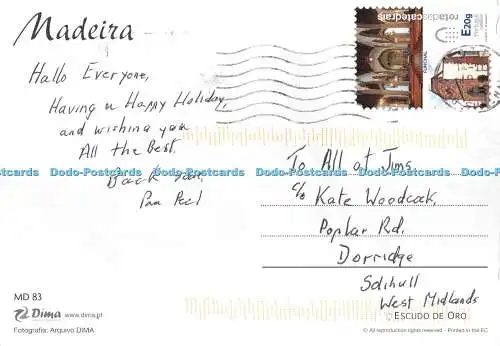 Madeira
E20g
Portugal
rotadascatedrais
FUNCHAL
Hallo Everyone,
Having a Happy Holiday,
and wishing you
All the Best.
Back soon,
Dodo-Postcards Dodo-Postcards Dodo-Postcards Dodo-Postcards Dodo-Postcards
To All at Jims,
c/o Kate Woodcock,
Poplar Rd,
Dorridge
Solihull
West Midlands
MD 83
Dima www.dima.pt
Fotografia: Arquivo DIMA
ESCUDO DE ORO
© All reproduction rights reserved - Printed in the EC